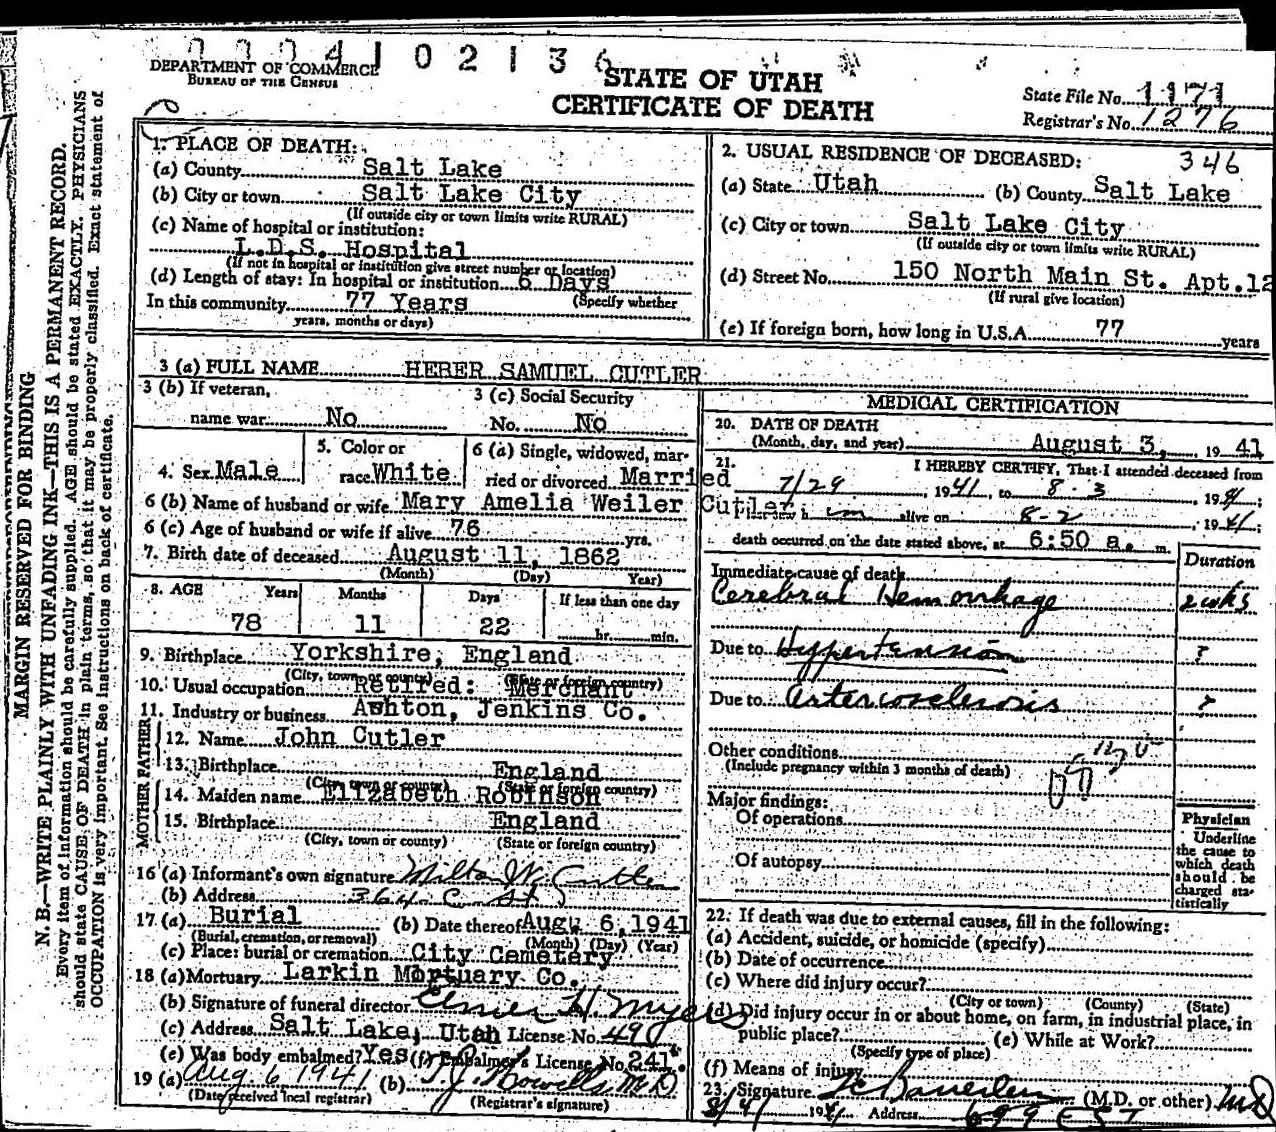 0004102136
DEPARTMENT OF COMMERCE
BUREAU OF THE CENSUS
STATE OF UTAH
CERTIFICATE OF DEATH
State File No. 1171
Registrar's No. 1276
346
MARGIN RESERVED FOR BINDING
N. B.—WRITE PLAINLY WITH UNFADING INK—THIS IS A PERMANENT RECORD.
Every item of information should be carefully supplied. AGE should be stated EXACTLY. PHYSICIANS
should state CAUSE OF DEATH in plain terms, so that it may be properly classified. Exact statement of
OCCUPATION is very important. See instructions on back of certificate.
1. PLACE OF DEATH:
(a) County Salt Lake
(b) City or town Salt Lake City
(If outside city or town limits write RURAL)
(c) Name of hospital or institution:
L.D.S. Hospital
(If not in hospital or institution give street number or location)
(d) Length of stay: In hospital or institution 6 Days
In this community 77 Years (Specify whether
years, months or days)
2. USUAL RESIDENCE OF DECEASED:
(a) State Utah (b) County Salt Lake
(c) City or town Salt Lake City
(If outside city or town limits write RURAL)
(d) Street No. 150 North Main St. Apt.12
(If rural give location)
(e) If foreign born, how long in U.S.A. 77 years
3 (a) FULL NAME HEBER SAMUEL CUTLER
3 (b) If veteran,
name war No
3 (c) Social Security
No. No
4. Sex Male
5. Color or
race White
6 (a) Single, widowed, mar-
ried or divorced Married
6 (b) Name of husband or wife Mary Amelia Weiler Cutler
6 (c) Age of husband or wife if alive 76 yrs.
7. Birth date of deceased August 11, 1862
(Month) (Day) Year)
8. AGE Years Months Days If less than one day
78 11 22 hr. min.
9. Birthplace Yorkshire, England
(City, town or county) (State or foreign country)
10. Usual occupation Retired: Merchant
11. Industry or business Ashton, Jenkins Co.
FATHER
12. Name John Cutler
13. Birthplace England
(City, town or county) (State or foreign country)
MOTHER
14. Maiden name Elizabeth Robinson
15. Birthplace England
(City, town or county) (State or foreign country)
16 (a) Informant's own signature Milton W. Cutler
(b) Address 364 C St
17 (a) Burial (b) Date thereof Augu 6, 1941
(Burial, cremation, or removal) (Month) (Day) (Year)
(c) Place: burial or cremation City Cemetery
18 (a) Mortuary Larkin Mortuary Co.
(b) Signature of funeral director Elmer H. Myers
(c) Address Salt Lake, Utah License No. 490
(e) Was body embalmed? Yes (f) Embalmer's License No. 241
19 (a) Aug 6, 1941 (b) T.J. Howells M.D
(Date received local registrar) (Registrar's signature)
MEDICAL CERTIFICATION
20. DATE OF DEATH
(Month, day, and year) August 3, 1941
21. I HEREBY CERTIFY, That I attended deceased from
7/29, 1941, to 8-3, 1941;
im alive on 8-2, 1941;
death occurred on the date stated above, at 6:50 a. m.
Duration
Immediate cause of death
Cerebral Hemorrhage 2 wks
Due to Hypertension ?
Due to arteriosclerosis ?
Other conditions
(Include pregnancy within 3 months of death)
Major findings:
Of operations
Of autopsy
Physician
Underline
the cause to
which death
should be
charged sta-
tistically
22. If death was due to external causes, fill in the following:
(a) Accident, suicide, or homicide (specify)
(b) Date of occurrence
(c) Where did injury occur?
(City or town) (County) (State)
(d) Did injury occur in or about home, on farm, in industrial place, in
public place? (e) While at Work?
(Specify type of place)
(f) Means of injury
23. Signature (M.D. or other) MD
1941 Address 699 E S T